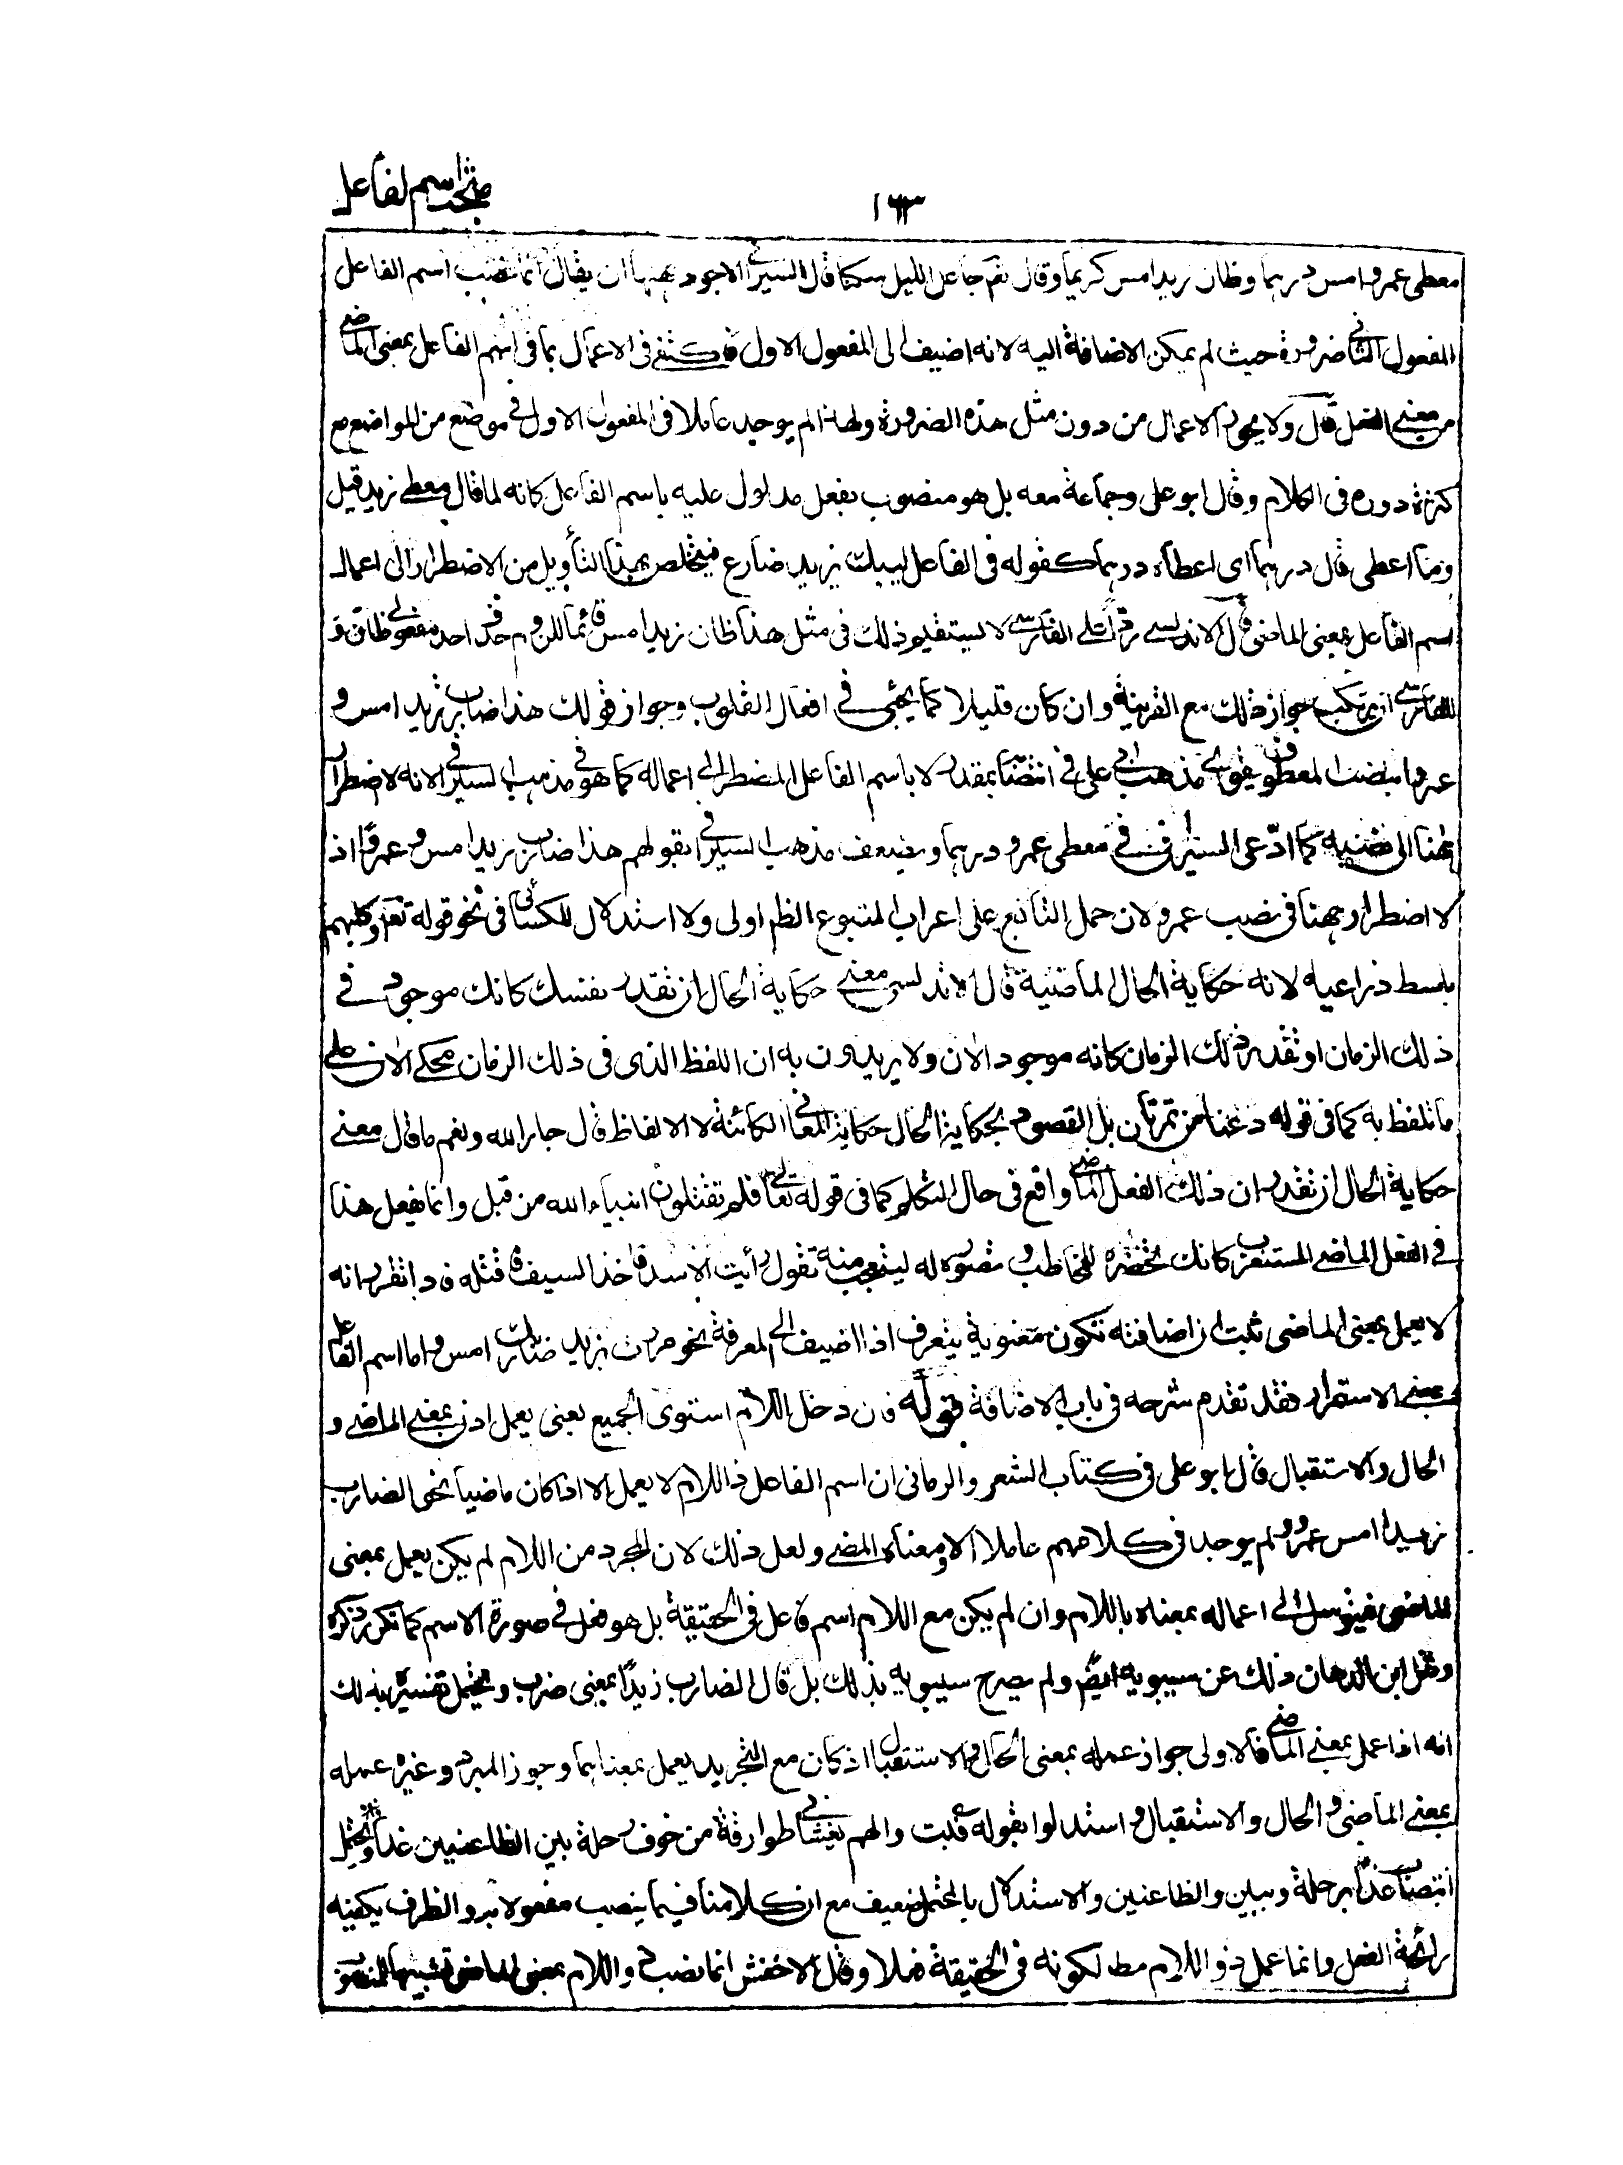 مبحث اسم الفاعل
١٦٣
معطى عمرو امس درهما وظان زيد امس كريما وقال تع جاعل الليل سكنا قال السيرافى الاجود ههنا ان يقال انما نصب اسم الفاعل
المفعول الثانى ضرورة حيث لم يمكن الاضافة اليه لانه اضيف الى المفعول الاول فاكتفى فى الاعمال بما فى اسم الفاعل بمعنى الماضى
من معنى الفعل قال ولا يجوز الاعمال من دون مثل هذه الضرورة ولهذا لم يوجد عاملا فى المفعول الاول فى موضع من المواضع مع
كثرة دوره فى الكلام وقال ابو على وجماعة معه بل هو منصوب بفعل مدلول عليه باسم الفاعل كانه لما قال معطى زيد قيل
وما اعطى قال درهما اى اعطاه درهما كقوله فى الفاعل ليبك يزيد ضارع فيتخلص بهذا التأويل من الاضطرار الى اعمال
اسم الفاعل بمعنى الماضى قال الاندلسى ردا على الفارسى لا يستقيم ذلك فى مثل هذا ظان زيد امس قائما للزوم حذف احد مفعولى ظان و
للفارسى ان يرتكب جواز ذلك مع القرينة وان كان قليلا كما يجئ فى افعال القلوب وجواز قولك هذا ضارب زيد امس و
عمروا بنصب المعطوف يقوى مذهب ابى على فى انتصابه بمقدر لا باسم الفاعل المضطر الى اعماله كما هو فى مذهب السيرافى لانه لا اضطرار
ههنا الى نصبه كما ادّعى السيرافى فى معطى عمرو درهما ويضعف مذهب السيرافى بقولهم هذا ضارب زيد امس وعمروا اذ
لا اضطرار ههنا فى نصب عمرو لان حمل التابع على اعراب المتبوع الظ اولى ولا استدلال للكسائى فى نحو قوله تعم وكلبهم
باسط ذراعيه لانه حكاية الحال الماضية قال الاندلسى معنى حكاية الحال ان تقدر نفسك كانك موجود فى
ذلك الزمان او تقدر ذلك الزمان كانه موجود الان ولا يريدون به ان اللفظ الذى فى ذلك الزمان محكى الان على
ما تلفظ به كما فى قوله دعنا من تمرتان بل المقصود بحكاية الحال حكاية المعانى الكائنة لا الالفاظ قال جار الله ونعم ما قال معنى
حكاية الحال ان تقدر ان ذلك الفعل الماضى واقع فى حال التكلم كما فى قوله تعالى فلم تقتلون انبياء الله من قبل وانما يفعل هذا
فى الفعل الماضى المستغرب كانك تحضره للمخاطب وتصوره له ليتعجب منه تقول رأيت الاسد فاخذ السيف فقتله فاذا تقرر انه
لا يعمل بمعنى الماضى ثبت ان اضافته تكون معنوية يتعرف اذا اضيف الى المعرفة نحو مررت بزيد ضاربك امس واما اسم الفاعل
بمعنى الاستمرار فقد تقدم شرحه فى باب الاضافة قوله فان دخل اللام استوى الجميع يعنى يعمل اذن بمعنى الماضى و
الحال والاستقبال قال ابو على فى كتاب الشعر والرمانى ان اسم الفاعل ذا اللام لا يعمل الا اذا كان ماضيا نحو الضارب
زيدا امس عمرو ولم يوجد فى كلامهم عاملا الا ومعناه المضى ولعل ذلك لان المجرد من اللام لم يكن يعمل بمعنى
الماضى فيتوسل الى اعماله بمعناه باللام وان لم يكن مع اللام اسم فاعل فى الحقيقة بل هو فعل فى صورة الاسم كما تكرر ذكره
ونقل ابن الدهان ذلك عن سيبويه ايضا ولم يصرح سيبويه بذلك بل قال الضارب زيدا بمعنى ضرب ويحتمل تفسيره بذلك
انه اذا عمل بمعنى الماضى فالاولى جواز عمله بمعنى الحال والاستقبال اذ كان مع التجريد يعمل بمعناهما وجوز المبرد وغيره عمله
بمعنى الماضى والحال والاستقبال واستدلوا بقوله ع فبت والهم يغشانى طوارقه من خوف رحلة بين الظاعنين غدا ويحتمل
انتصاب غدا برحلة وببين والظاعنين والاستدلال بالمحتمل ضعيف مع ان كلامنا فيما ينصب مفعولا به والظرف يكفيه
رائحة الفعل وانما عمل ذو اللام مط لكونه فى الحقيقة فعلا وقال الاخفش انما نصب ذو اللام بمعنى الماضى تشبيها للمنصوب